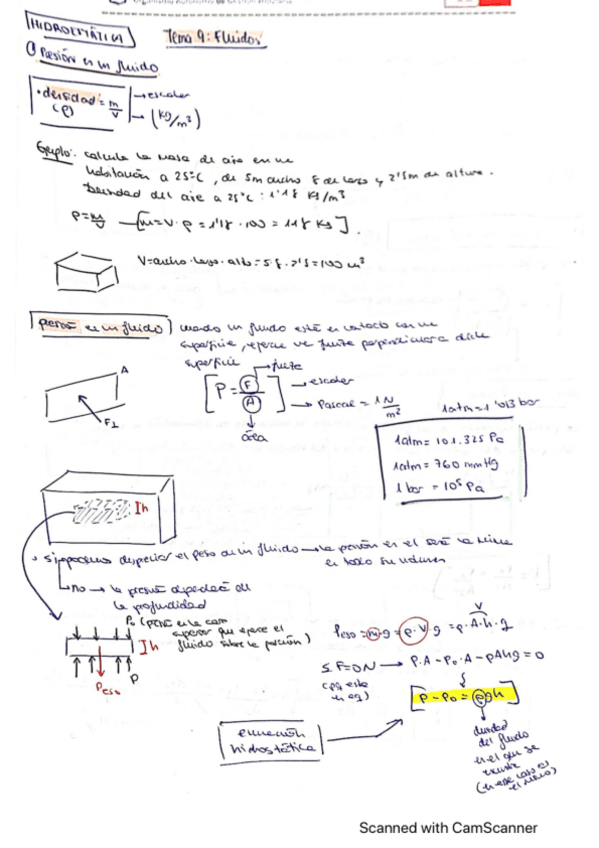 HIDROSTÁTICA
Tema 9: Fluidos
① Presión en un fluido
• densidad = m/V → escalar
(ρ) → (kg/m³)
Ejemplo: calcula la masa de aire en una
habitación a 25°C, de 5m ancho 8 de largo y 2'5m de altura.
Densidad del aire a 25°C: 1'18 kg/m³
ρ = m/V → [m = V · ρ = 1'18 · 100 = 118 kg].
V = ancho · largo · alto = 5 · 8 · 2'5 = 100 m³
presión en un fluido) cuando un fluido está en contacto con una
superficie, ejerce una fuerza perpendicular a dicha
superficie
A
F⊥
fuerza
[P = F/A] → escalar
→ Pascal = 1 N/m²
área
1atm = 1'013 bar
1atm = 101.325 Pa
1atm = 760 mmHg
1 bar = 10⁵ Pa
Ih
• si podemos despreciar el peso de un fluido → la presión en él será la misma
en todo su volumen
no → la presión dependerá de
la profundidad
P₀ (presión en la cara
superior que ejerce el
fluido sobre la porción)
Ih
Peso
P
Peso = m · g = ρ · V · g = ρ · A · h · g
V
Σ F = 0 N → P · A - P₀ · A - ρAhg = 0
(pq está
en eq)
[P - P₀ = ρgh]
ecuación
hidrostática
densidad
del fluido
en el que se
(en este caso es
Scanned with CamScanner